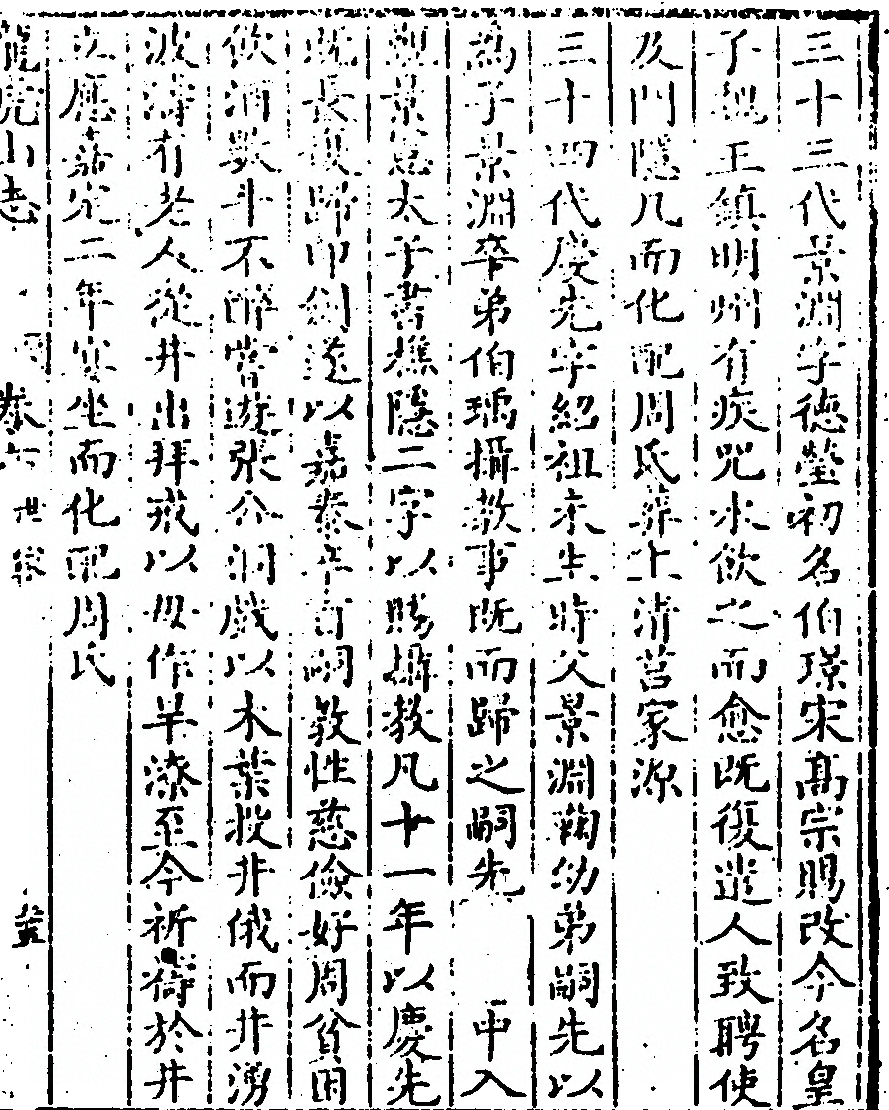 三十三代景淵字德瑩初名伯璟宋高宗賜改今名皇
子魏王鎮明州有疾咒水飲之而愈既復遣人致聘使
及門隱几而化配周氏葬上清莒家源
三十四代慶先字紹祖未生時父景淵鞠幼弟嗣先以
為子景淵卒弟伯瑀攝教事既而歸之嗣先 中入
覲景惠太子書樵隱二字以賜攝教凡十一年以慶先
既長復歸印劍遂以嘉泰辛酉嗣教性慈儉好周貧困
飲酒數斗不醉嘗遊張公洞戲以木葉投井俄而井湧
波濤有老人從井出拜戒以毋作旱潦至今祈禱於井
立應嘉定二年宴坐而化配周氏
龍虎山志 卷六 世家